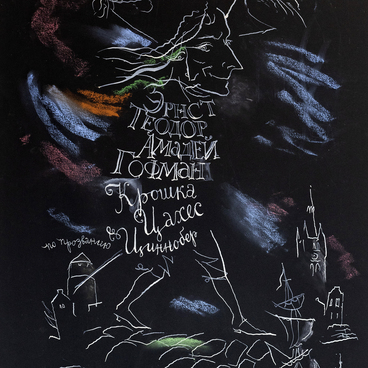 Эрнст
Теодор
Амадей
Гофман
Крошка
Цахес
по прозванию
Циннобер